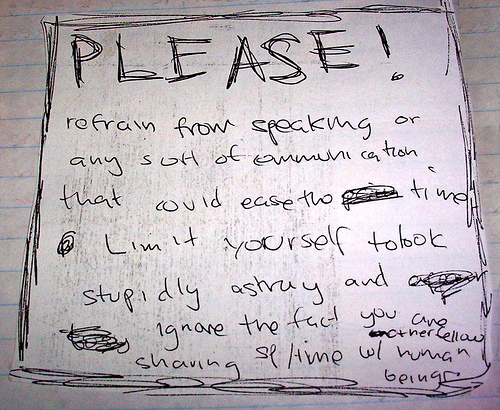 PLEASE!
refrain from speaking or
any sort of communication
that could ease the time
Limit yourself to look
stupidly astray and
ignore the fact you are
other fellow
sharing SP/time w/ human
beings